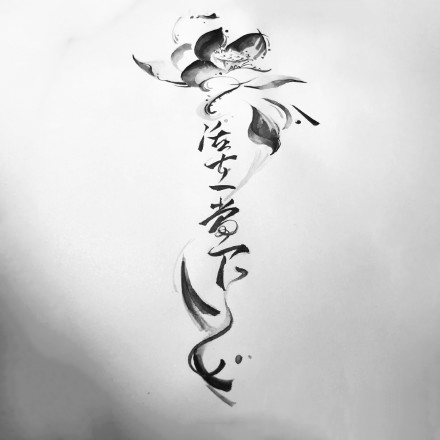 活在當下